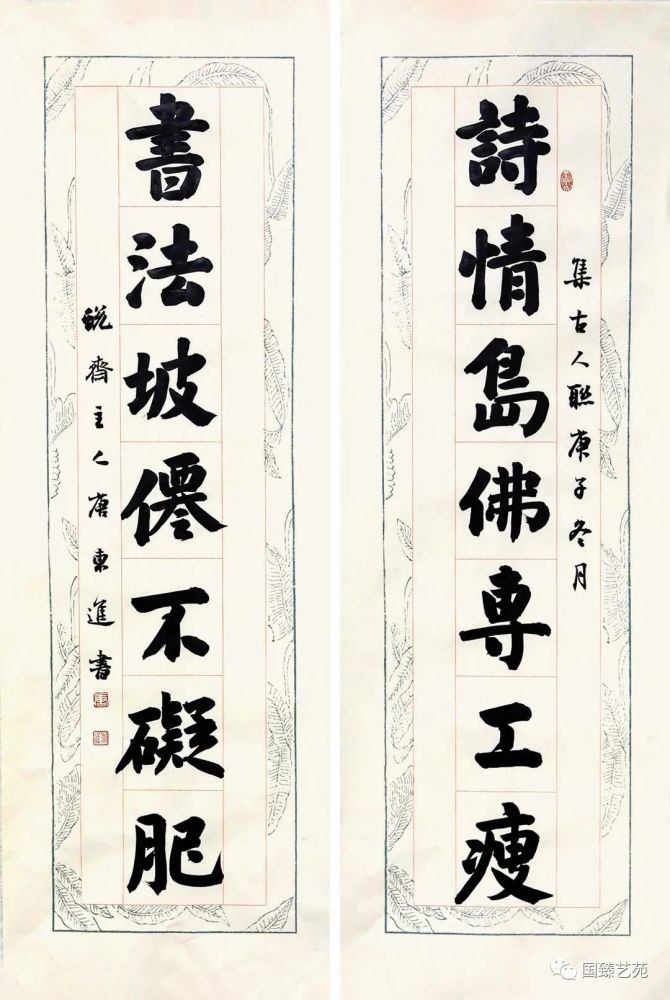 詩情島佛專工瘦
集古人聯庚子冬月
書法坡僊不礙肥
銳齋主人唐東進書
国臻艺苑